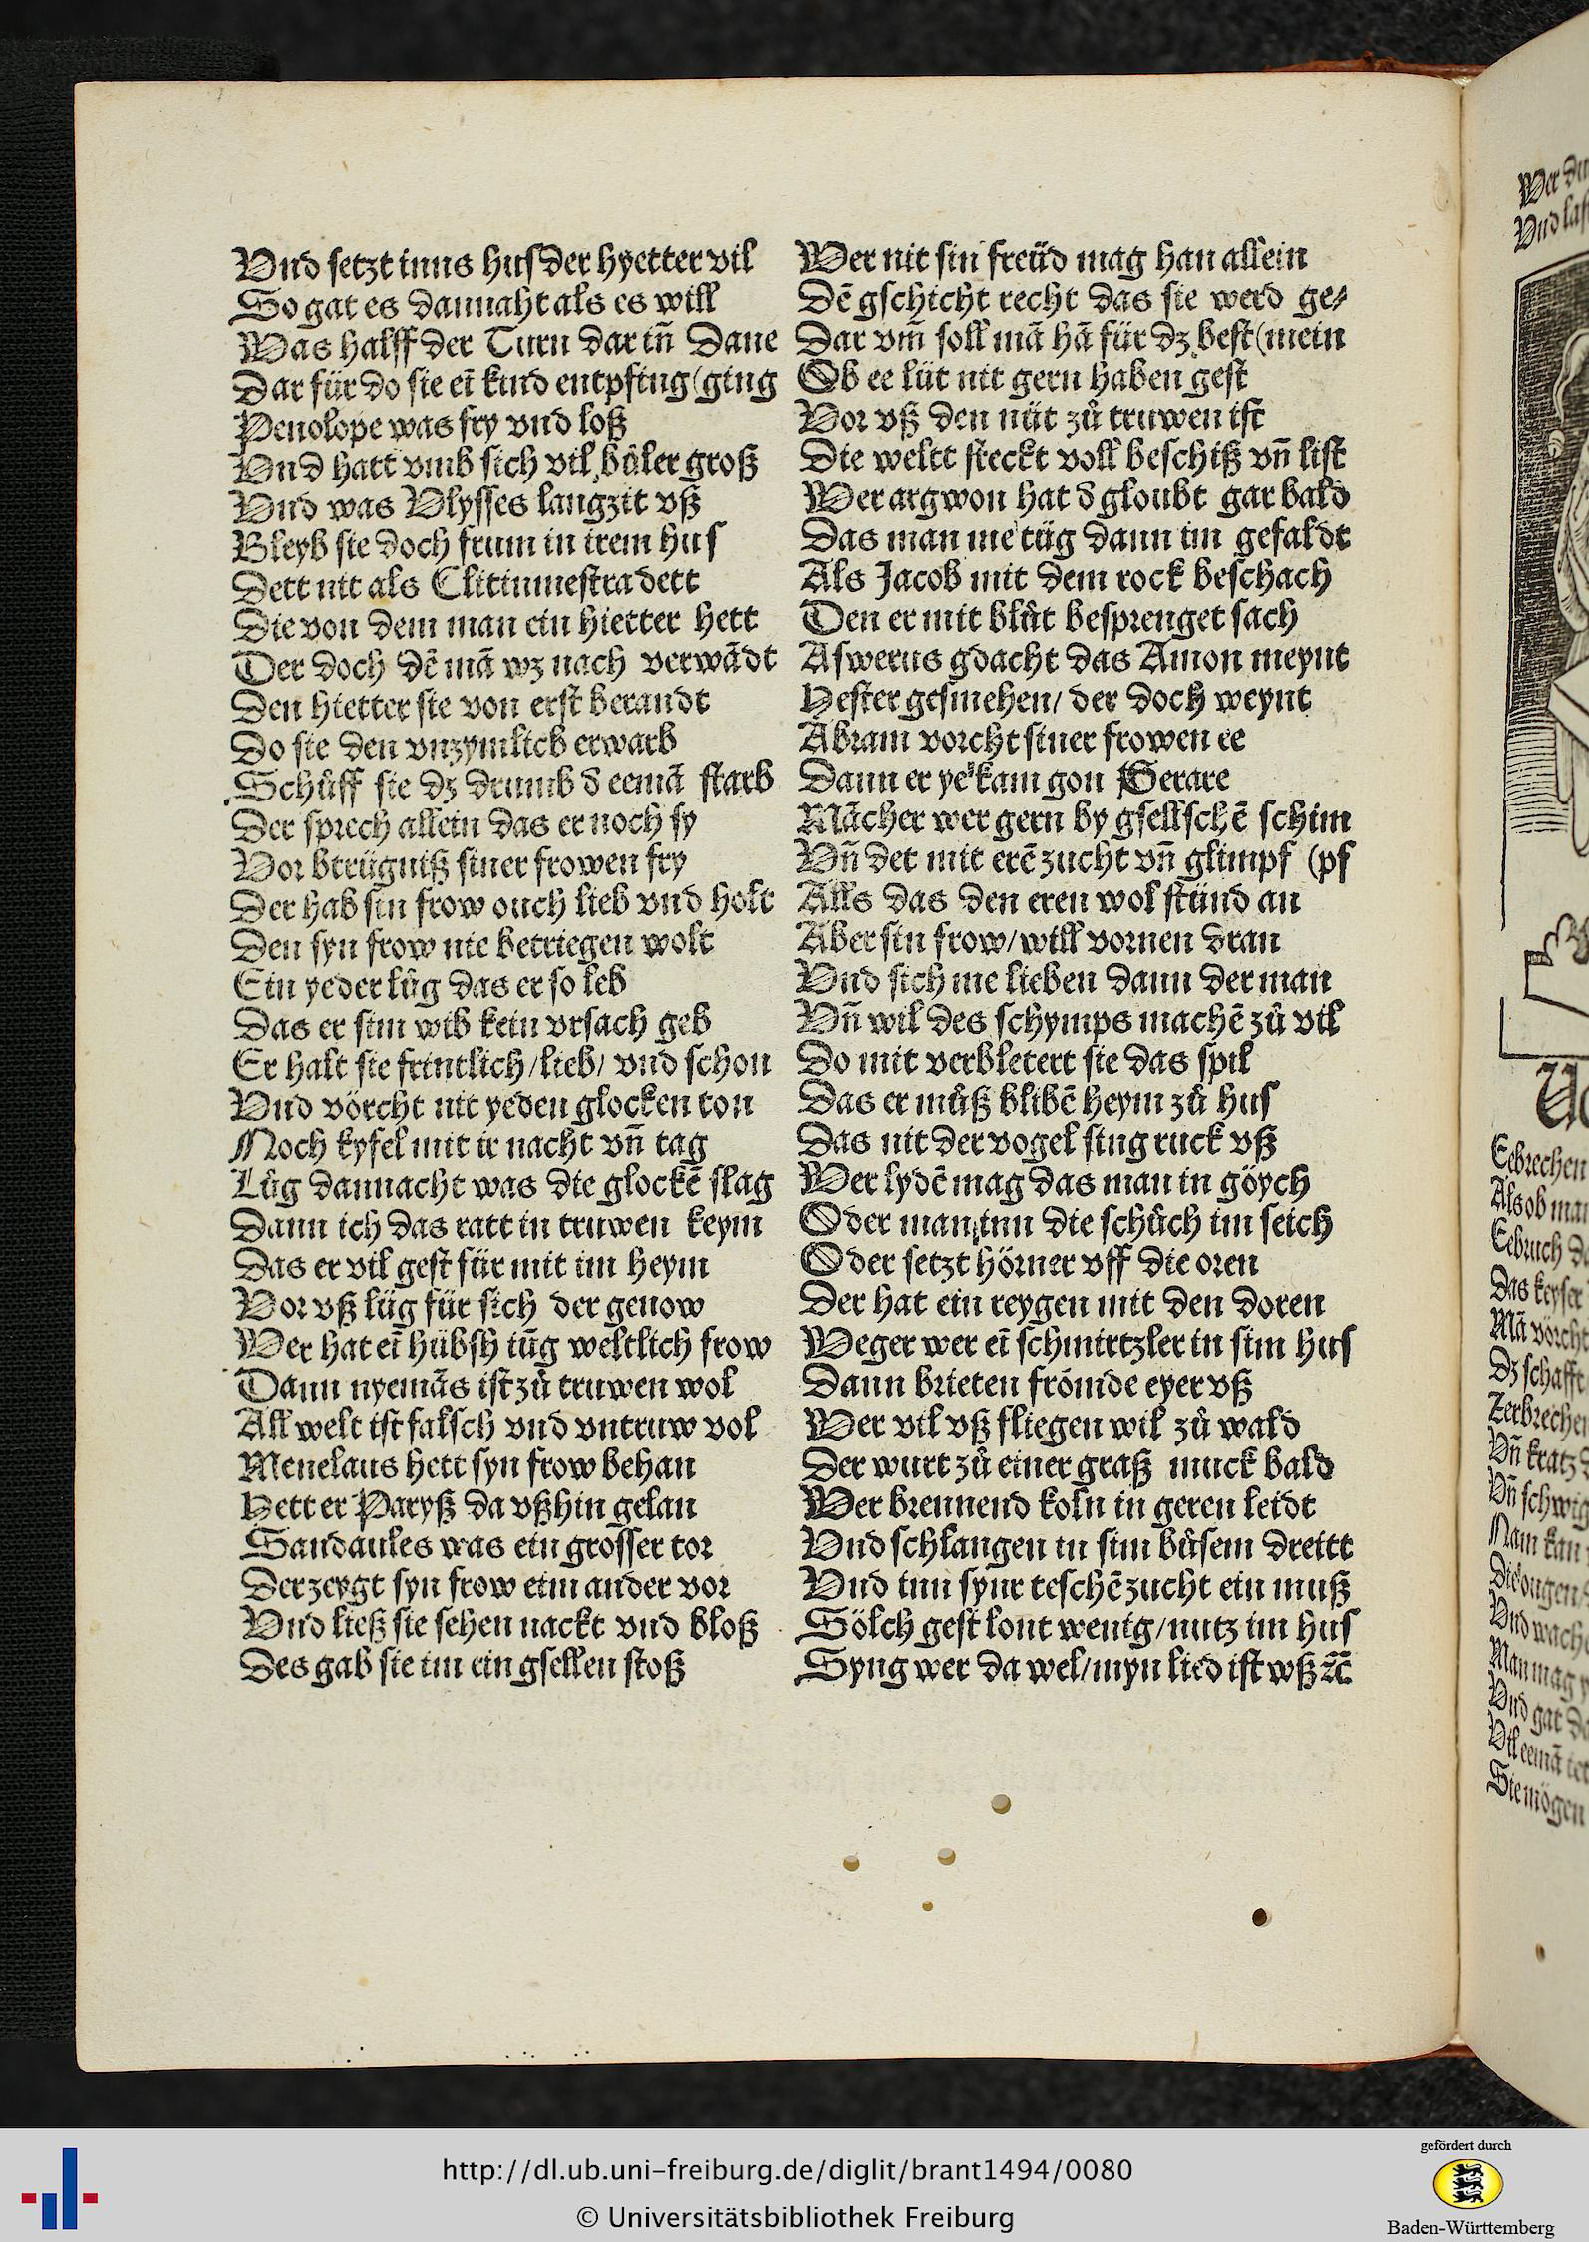 Vnd setzt inns hus der hyetter vil
So gat es dannaht als es will
Was halff der Turn dar iñ Dane
Dar für do sie eī kind entpfing (ging
Penolope was fry vnd loß
Vnd hatt vmb sich vil bůler groß
Vnd was Vlysses langzit vß
Bleyb sie doch frum in irem hus
Dett nit als Clitinmestra dett
Die von dem man ein hietter hett
Der doch dē mā wz nach verwādt
Den hietter sie von erst berandt
Do sie den vnzymlich erwarb
Schůff sie dz drumb d eemā starb
Der sprech allein das er noch sy
Vor btrügniß siner frowen fry
Der hab sin frow ouch lieb vnd holt
Den syn frow nie betriegen wolt
Ein yeder lůg das er so leb
Das er sim wib kein vrsach geb
Er halt sie frintlich/lieb/ vnd schon
Vnd vörcht nit yeden glocken ton
Noch kyfel mit ir nacht vñ tag
Lůg dannacht was die glockē slag
Dann ich das ratt in truwen keym
Das er vil gest für mit im heym
Vor vß lüg für sich der genow
Wer hat eī hübsh iūg weltlich frow
Dann nyemās ist zů truwen wol
All welt ist falsch vnd vntruw vol
Menelaus hett syn frow behan
Hett er Paryß da vßhin gelan
Sandaules was ein grosser tor
Der zeygt syn frow eim ander vor
Vnd ließ sie sehen nackt vnd bloß
Des gab sie im ein gsellen stoß
Wer nit sin freüd mag han allein
Dē gschicht recht das sie werd ge⸗
Dar vm̄ soll mā hā für dz best (mein
Ob ee lüt nit gern haben gest
Vor vß den nüt zů truwen ist
Die weltt steckt voll beschiß vñ list
Wer argwon hat d gloubt gar bald
Das man me tüg dann im gefaldt
Als Jacob mit dem rock beschach
Den er mit blůt besprenget sach
Aswerus gdacht das Amon meynt
Hester gesmehen/ der doch weynt
Abram vorcht siner frowen ee
Dann er ye kam gon Gerare
Mācher wer gern by gsellschē schim
Vñ det mit erē zucht vñ glimpf (pf
Alls das den eren wol stünd an
Aber sin frow/will vornen dran
Vnd sich me lieben dann der man
Vñ wil des schymps machē zů vil
Do mit verbletert sie das spil
Das er můß blibē heym zů hus
Das nit der vogel sing ruck vß
Wer lydē mag das man in göych
Oder man inn die schůch im seich
Oder setzt hörner vff die oren
Der hat ein reygen mit den doren
Weger wer eī schmirtzler in sim hus
Dann brieten frömde eyer vß
Wer vil vß fliegen wil zů wald
Der wurt zů einer graß muck bald
Wer brennend koln in geren leidt
Vnd schlangen in sim bůsem dreitt
Vnd inn synr teschē zucht ein muß
Sölch gest lont wenig/nutz im hus
Syng wer da wel/myn lied ist wß ꝛc̄
http://dl.ub.uni-freiburg.de/diglit/brant1494/0080
© Universitätsbibliothek Freiburg
gefördert durch
Baden-Württemberg